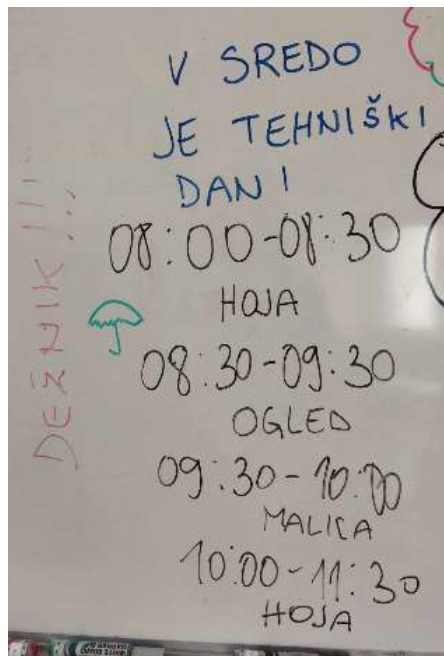 V SREDO
JE TEHNIŠKI
DAN!
08:00-08:30
HOJA
08:30-09:30
OGLED
09:30-10:00
MALICA
10:00-11:30
HOJA
DEŽNIK!!!